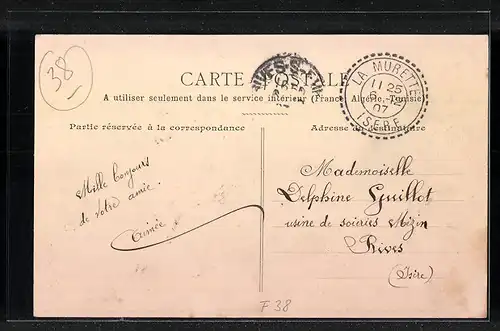 38
CARTE POSTALE
A utiliser seulement dans le service intérieur (France, Algérie, Tunisie)
Partie réservée à la correspondance
Adresse du destinataire
LA MURETTE
11 25
6
07
ISÈRE
Mille bonjours
de votre amie.
Aimée
Mademoiselle
Delphine Guillot
usine de soieries
Rives
(Isère)
F 38